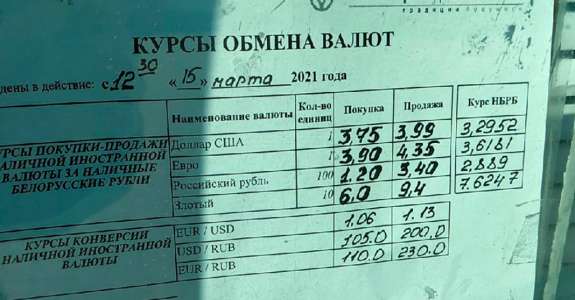 КУРСЫ ОБМЕНА ВАЛЮТ
дены в действие: с 12 30 «15» марта 2021 года
Наименование валюты Кол-во единиц Покупка Продажа Курс НБРБ
УРСЫ ПОКУПКИ-ПРОДАЖИ
НАЛИЧНОЙ ИНОСТРАННОЙ
ВАЛЮТЫ ЗА НАЛИЧНЫЕ
БЕЛОРУССКИЕ РУБЛИ
Доллар США 1 3,75 3,99 3,2952
Евро 1 3,90 4,35 3,6181
Российский рубль 100 1.20 3,40 2,889
Злотый 10 6.0 9,4 7.6247
КУРСЫ КОНВЕРСИИ
НАЛИЧНОЙ ИНОСТРАННОЙ
ВАЛЮТЫ
EUR / USD 1.06 1.13
USD / RUB 105.0 200.0
EUR / RUB 110.0 230.0